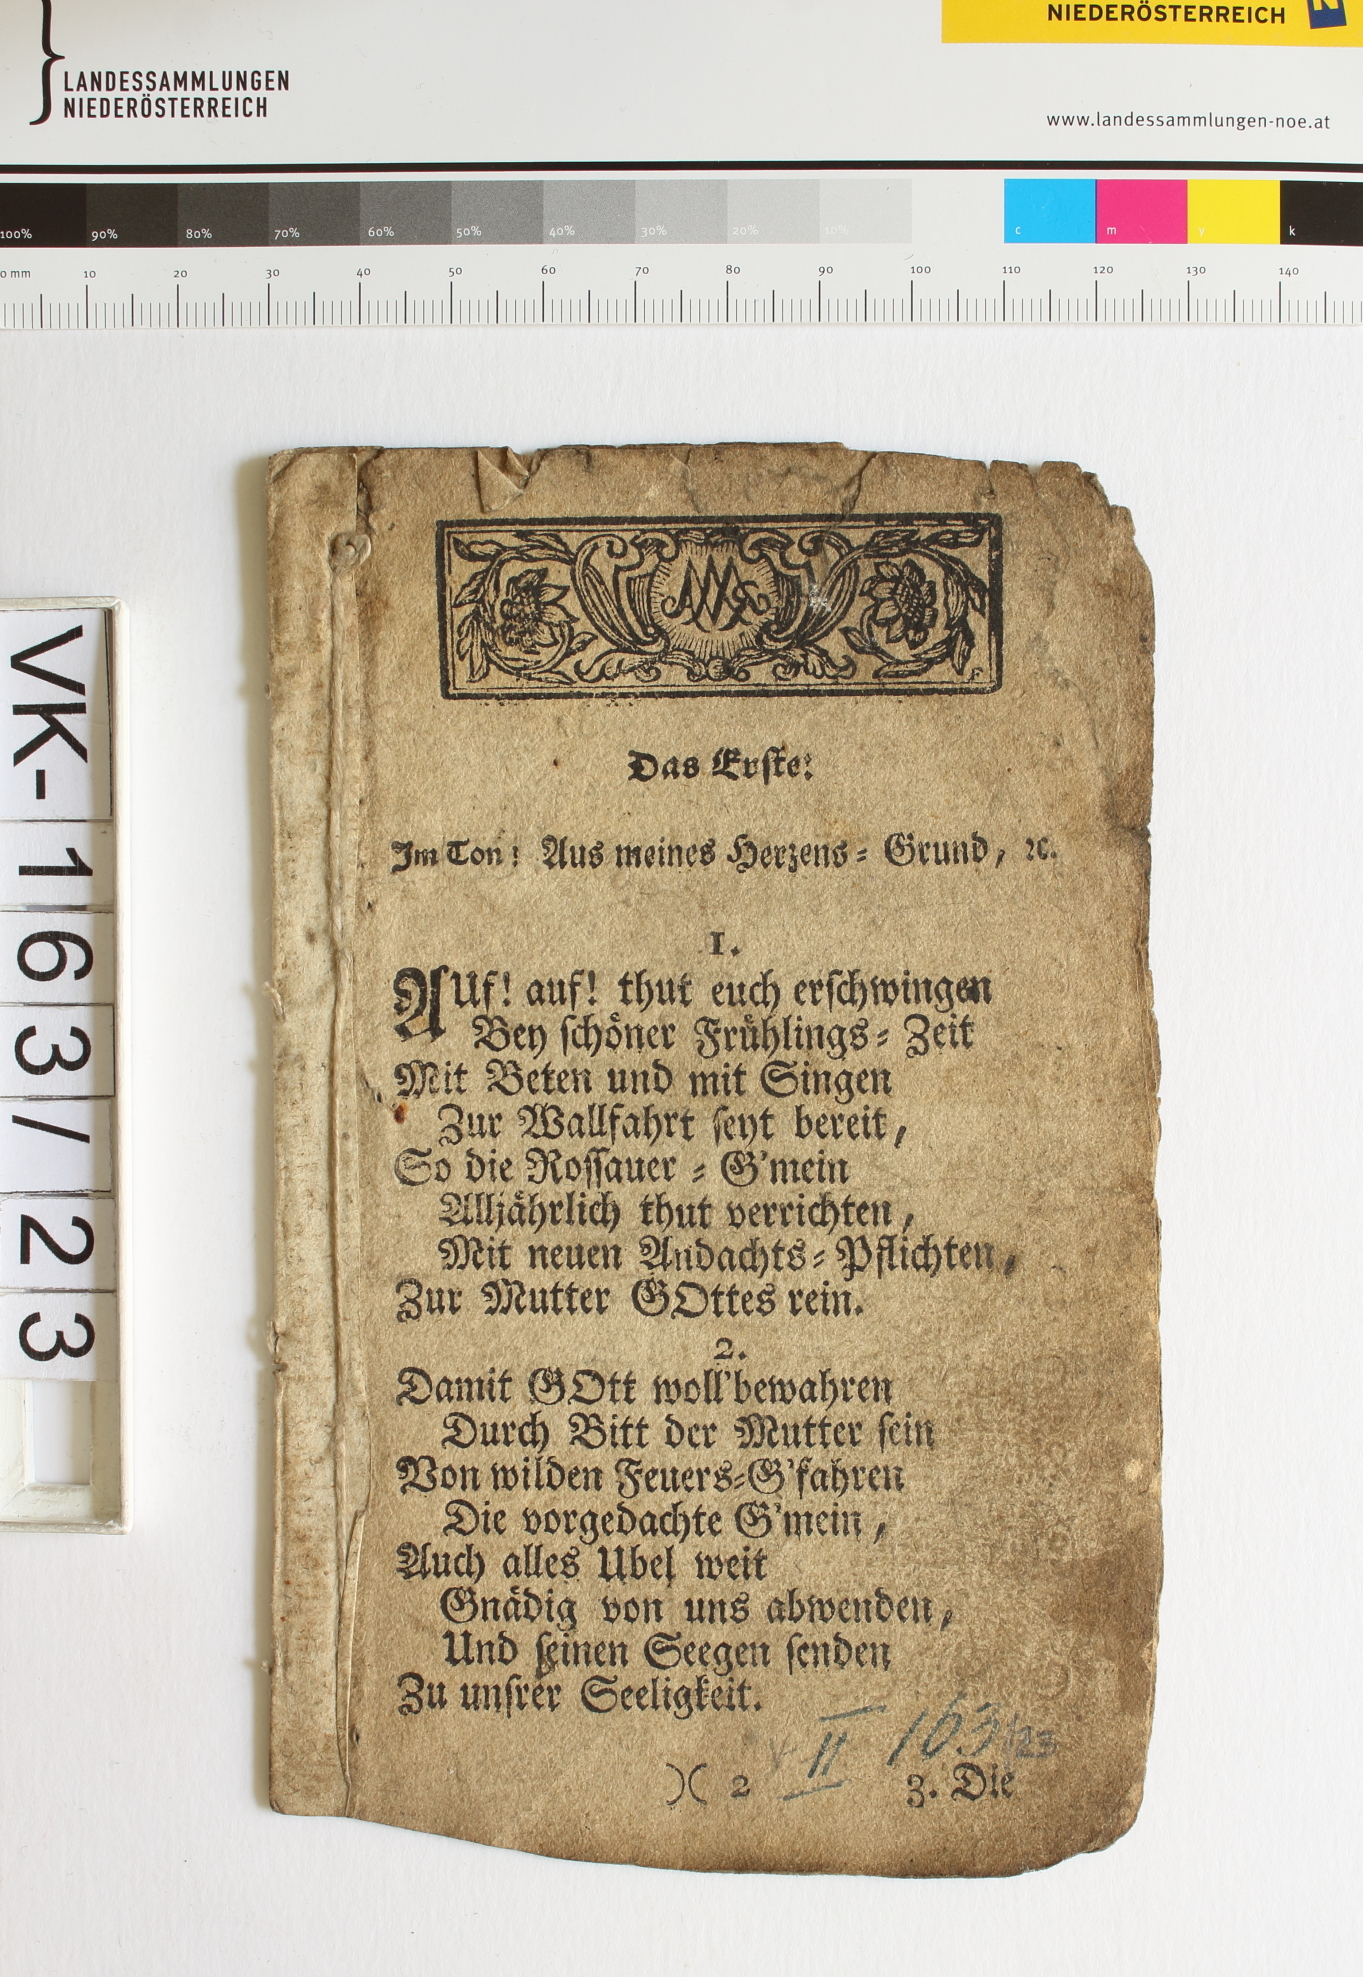 NIEDERÖSTERREICH
LANDESSAMMLUNGEN
NIEDERÖSTERREICH
www.landessammlungen-noe.at
100% 90% 80% 70% 60% 50% 40% 30% 20% 10% c m y k
0 mm 10 20 30 40 50 60 70 80 90 100 110 120 130 140
VK-163/23
Das Erste:
Im Ton: Aus meines Herzens= Grund, ꝛc.
1.
AUf! auf! thut euch erschwingen
Bey schöner Frühlings= Zeit
Mit Beten und mit Singen
Zur Wallfahrt seyt bereit,
So die Rossauer = G'mein
Alljährlich thut verrichten,
Mit neuen Andachts= Pflichten,
Zur Mutter GOttes rein.
2.
Damit GOtt woll'bewahren
Durch Bitt der Mutter sein
Von wilden Feuers=G'fahren
Die vorgedachte G'mein,
Auch alles Ubel weit
Gnädig von uns abwenden,
Und seinen Seegen senden
Zu unsrer Seeligkeit.
II 163/23
)( 2 3. Die